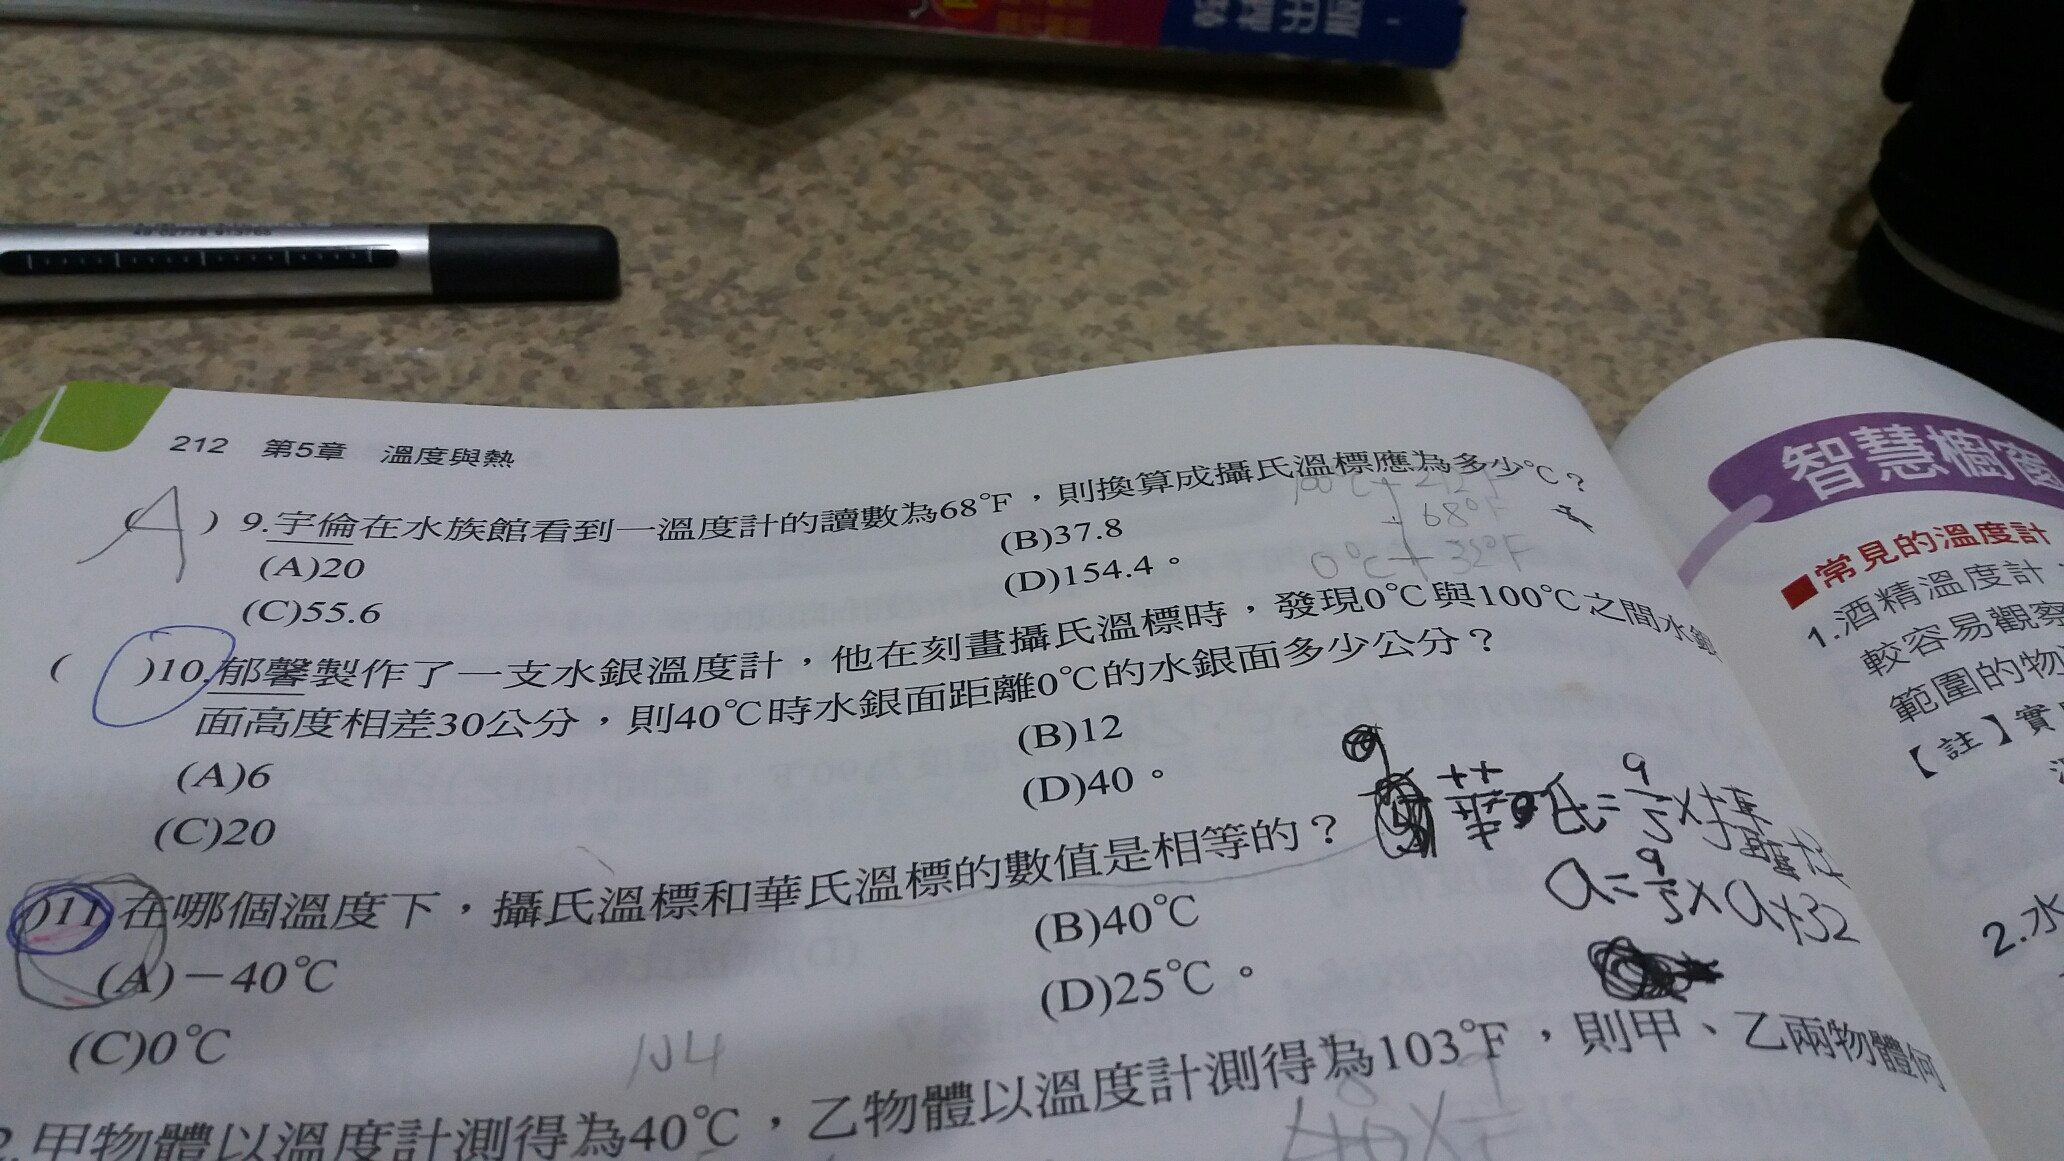 212 第5章 溫度與熱
(A) 9.宇倫在水族館看到一溫度計的讀數為68°F，則換算成攝氏溫標應為多少°C？
(A)20 (B)37.8
(C)55.6 (D)154.4。
100°C 212°F
68°F
0°C 32°F
( )10.郁馨製作了一支水銀溫度計，他在刻畫攝氏溫標時，發現0°C與100°C之間水銀
面高度相差30公分，則40°C時水銀面距離0°C的水銀面多少公分？
(A)6 (B)12
(C)20 (D)40。
)11.在哪個溫度下，攝氏溫標和華氏溫標的數值是相等的？
(A)－40°C (B)40°C
(C)0°C (D)25°C。
華氏=9/5×攝
a=9/5×a+32
104
2.甲物體以溫度計測得為40°C，乙物體以溫度計測得為103°F，則甲、乙兩物體何
40×
智慧櫥窗
■常見的溫度計
1.酒精溫度計
較容易觀察
範圍的物
【註】實
2.水